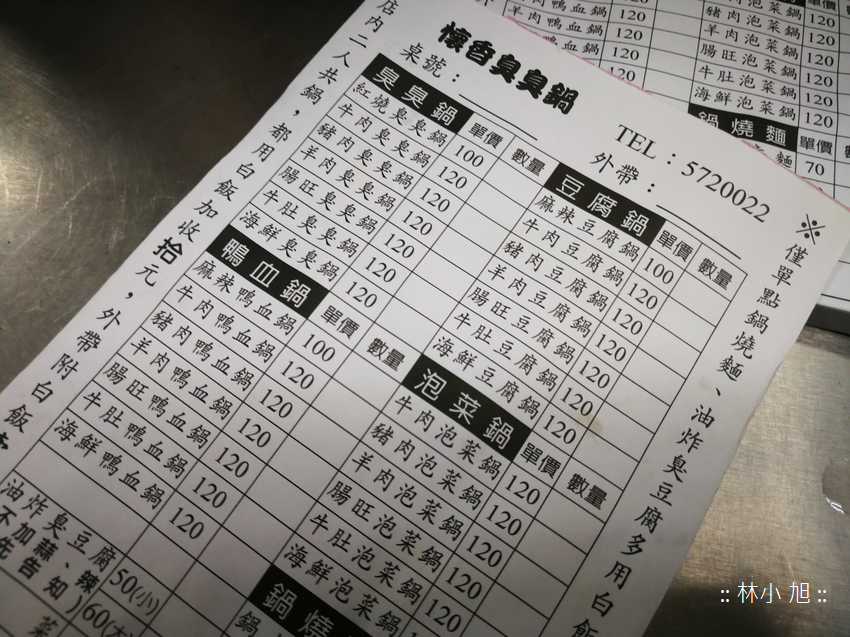 懷香臭臭鍋
桌號：
TEL：5720022
外帶：
店內二人共鍋，都用白飯加收拾元，外帶附白飯
臭臭鍋 單價 數量
紅燒臭臭鍋 100
牛肉臭臭鍋 120
豬肉臭臭鍋 120
羊肉臭臭鍋 120
腸旺臭臭鍋 120
牛肚臭臭鍋 120
海鮮臭臭鍋 120
鴨血鍋 單價 數量
麻辣鴨血鍋 100
牛肉鴨血鍋 120
豬肉鴨血鍋 120
羊肉鴨血鍋 120
腸旺鴨血鍋 120
牛肚鴨血鍋 120
海鮮鴨血鍋 120
油炸臭豆腐 50(小)
不加蒜、辣 60(大
先告知)
豆腐鍋 單價 數量
麻辣豆腐鍋 100
牛肉豆腐鍋 120
豬肉豆腐鍋 120
羊肉豆腐鍋 120
腸旺豆腐鍋 120
牛肚豆腐鍋 120
海鮮豆腐鍋 120
泡菜鍋 單價 數量
牛肉泡菜鍋 120
豬肉泡菜鍋 120
羊肉泡菜鍋 120
腸旺泡菜鍋 120
牛肚泡菜鍋 120
海鮮泡菜鍋 120
鍋燒
※僅單點鍋燒麵、油炸臭豆腐多用白飯
羊肉鴨血鍋 120
腸旺鴨血鍋 120
豬肉泡菜鍋 120
羊肉泡菜鍋 120
腸旺泡菜鍋 120
牛肚泡菜鍋 120
海鮮泡菜鍋 120
鍋燒麵 單價
麵 70
:: 林小旭 ::